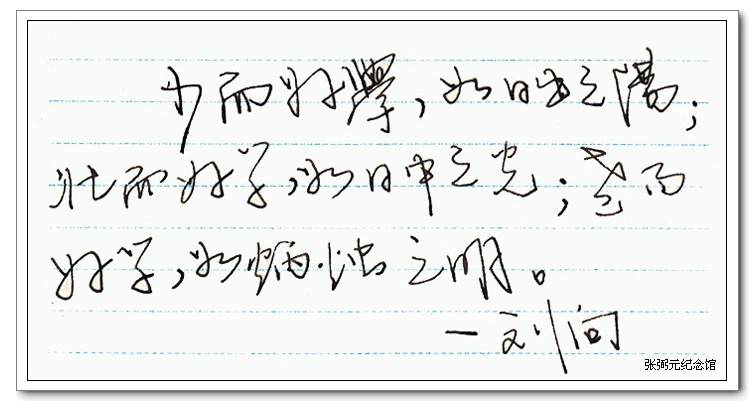 少而好學，如日出之陽；
壮而好学，如日中之光；老而
好学，如炳烛之明。
—刘向
张弼元纪念馆